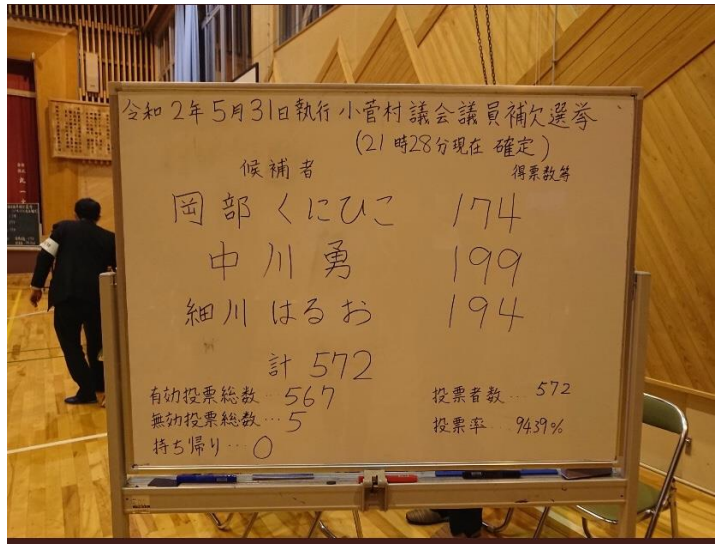 令和2年5月31日執行 小菅村議会議員補欠選挙
(21時28分現在 確定)
候補者 得票数等
岡部 くにひこ 174
中川 勇 199
細川 はるお 194
計 572
有効投票総数…567 投票者数…572
無効投票総数…5 投票率…9439%
持ち帰り…0